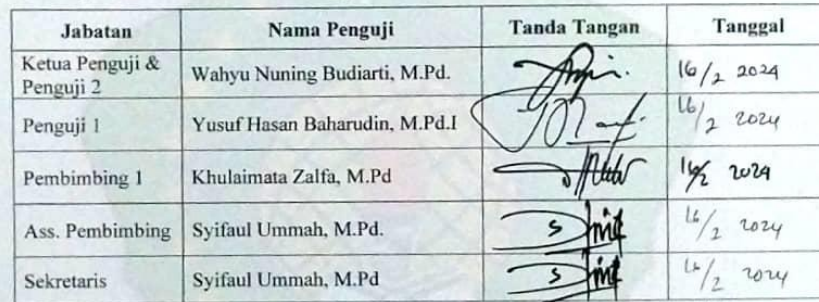 Jabatan Nama Penguji Tanda Tangan Tanggal
Ketua Penguji &
Penguji 2 Wahyu Nuning Budiarti, M.Pd. 16/2 2024
Penguji 1 Yusuf Hasan Baharudin, M.Pd.I 16/2 2024
Pembimbing 1 Khulaimata Zalfa, M.Pd 16/2 2024
Ass. Pembimbing Syifaul Ummah, M.Pd. 16/2 2024
Sekretaris Syifaul Ummah, M.Pd 16/2 2024